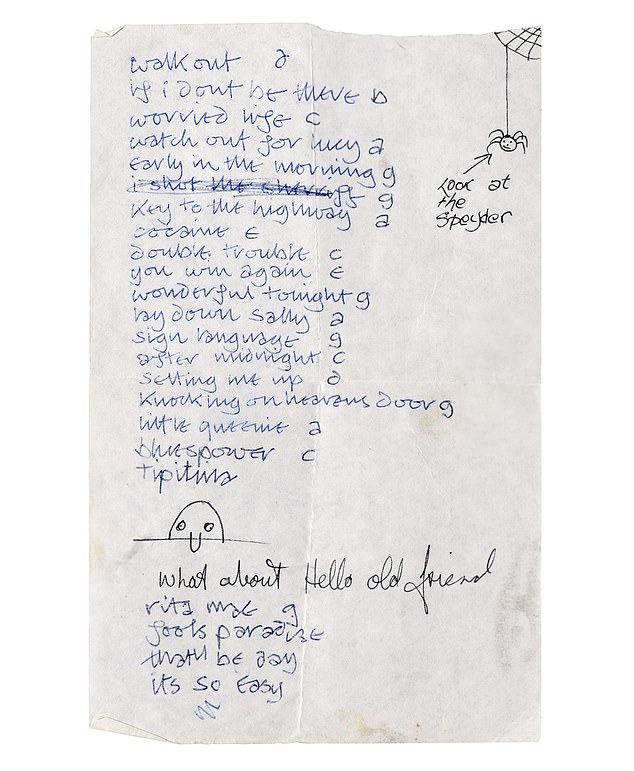 walk out a
if i dont be there b
worried life c
watch out for lucy a
early in the morning g
i shot the sheriff g
key to the highway a
cocaine E
double trouble c
you win again E
wonderful tonight g
lay down sally a
sign language g
after midnight c
setting me up a
knocking on heavens door g
little queenie a
bluespower c
tipitina
Look at
the
Speyder
what about Hello old friend
rita mae g
fools paradise
thatll be day
its so easy